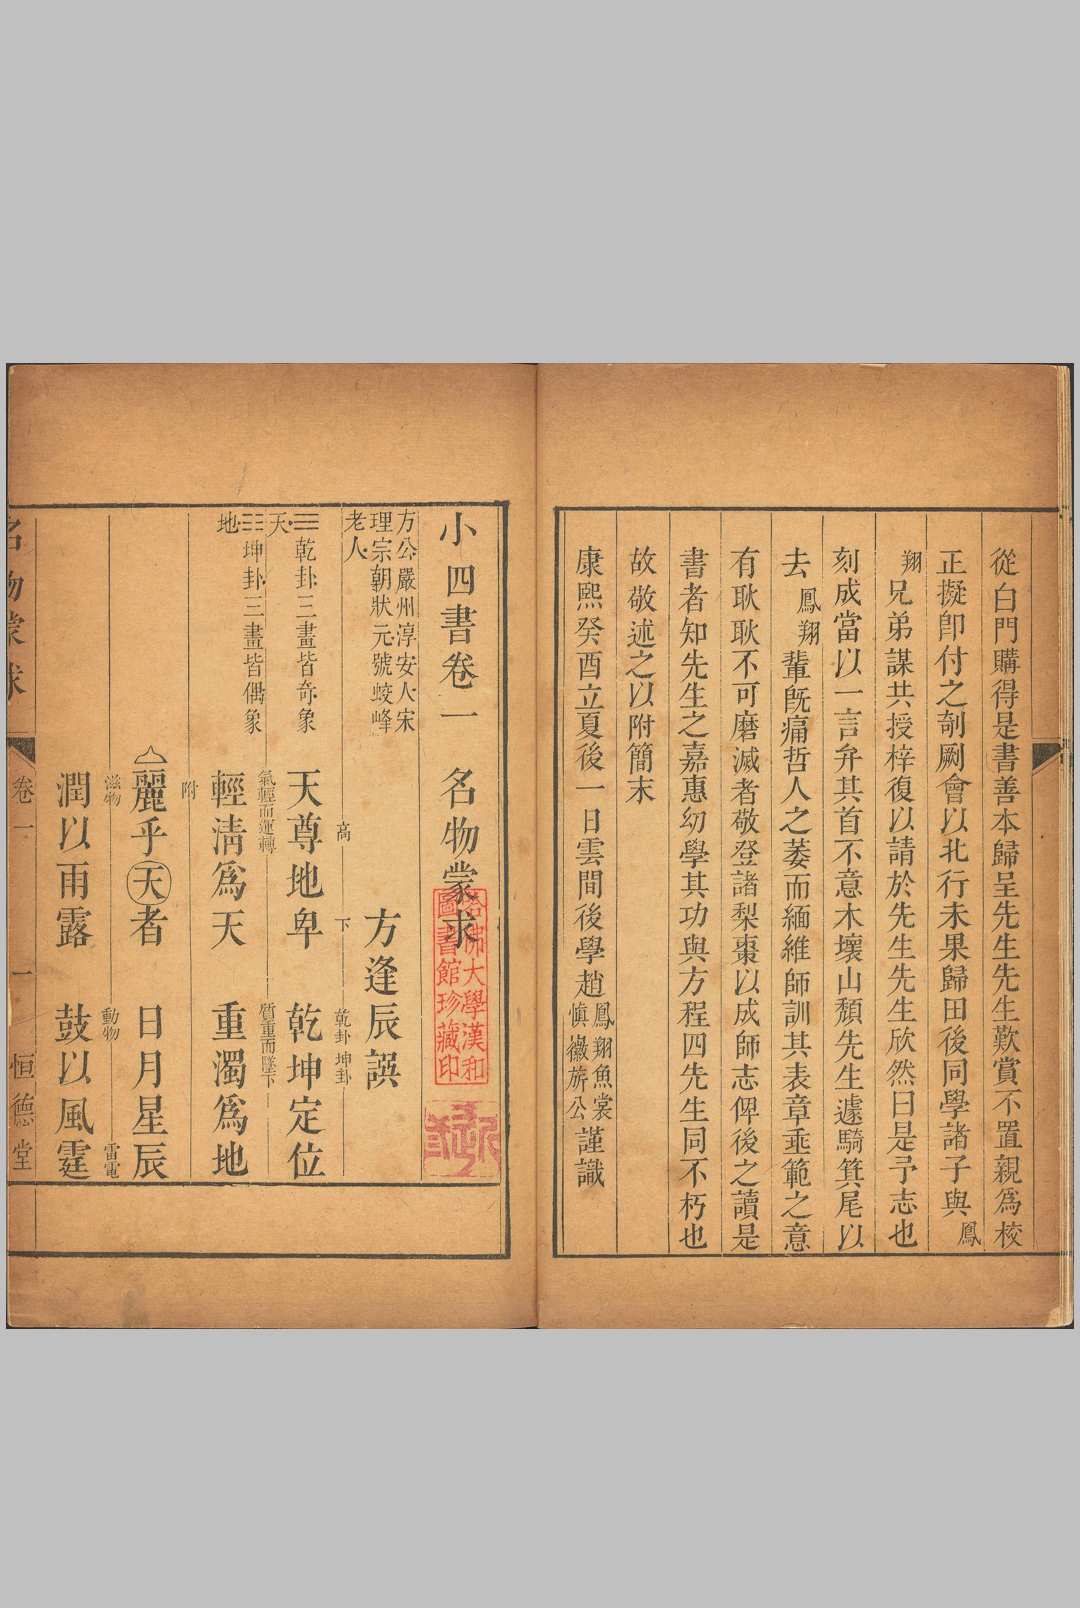 從白門購得是書善本歸呈先生先生歎賞不置親爲校
正擬卽付之剞劂會以北行未果歸田後同學諸子與鳳
翔兄弟謀共授梓復以請於先生先生欣然曰是予志也
刻成當以一言弁其首不意木壞山頹先生遽騎箕尾以
去鳳翔輩旣痛哲人之萎而緬維師訓其表章垂範之意
有耿耿不可磨滅者敬登諸梨棗以成師志俾後之讀是
書者知先生之嘉惠幼學其功與方程四先生同不朽也
故敬述之以附簡末
康熙癸酉立夏後一日雲間後學趙鳳翔魚裳慎徽旂公謹識
小四書卷一 名物蒙求
洛佛大學漢和圖書館珍藏印
方逢辰譔
方公嚴州淳安人宋
理宗朝狀元號蛟峰
老人
高 下 乾卦 坤卦
天尊地卑 乾坤定位
☰乾卦三畫皆奇象
天
氣輕而運轉 質重而墜下
☷坤卦三畫皆偶象
地
輕淸爲天 重濁爲地
附
麗乎天者 日月星辰
滋物 動物 雷電
潤以雨露 鼓以風霆
名物蒙求 卷一 一 恒德堂